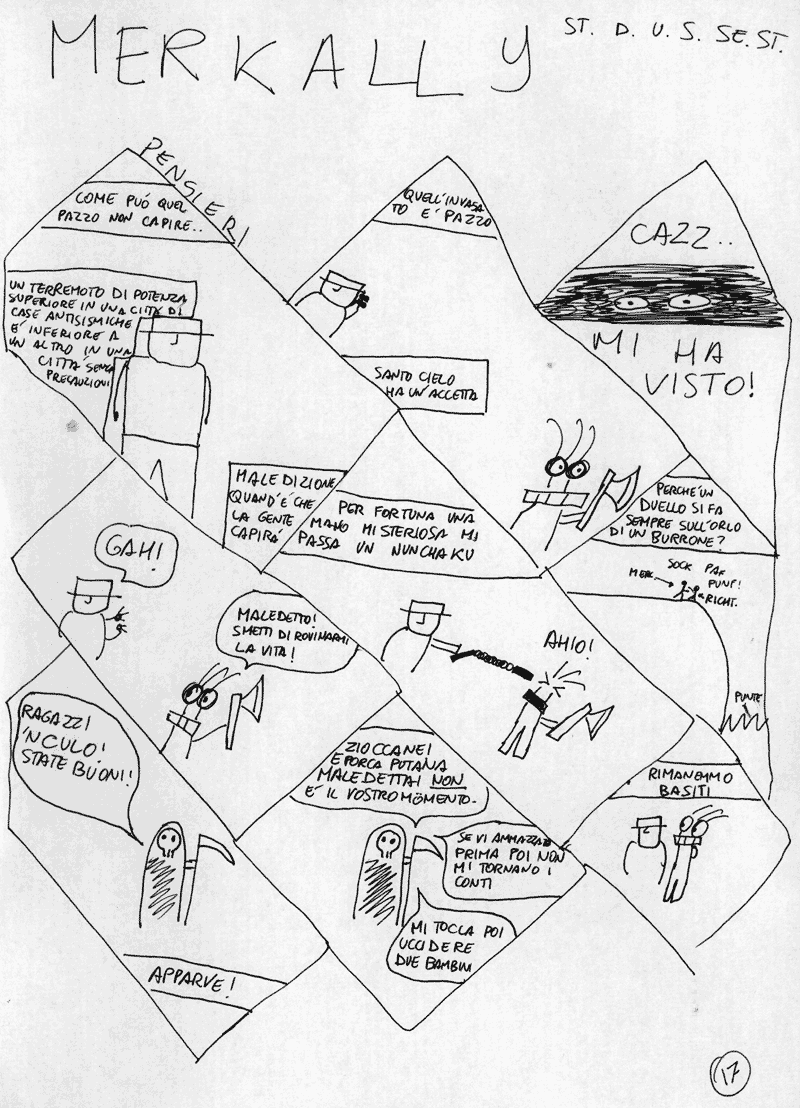 MERKALLY
ST. D. U. S. SE. ST.
PENSIERI
COME PUÓ QUEL
PAZZO NON CAPIRE..
UN TERREMOTO DI POTENZA
SUPERIORE IN UNA CITTÁ DI
CASE ANTISISMICHE
E' INFERIORE A
UN ALTRO IN UNA
CITTÁ SENZA
PRECAUZIONI
QUELL'INVASA
TO E' PAZZO
SANTO CIELO
HA UN'ACCETTA
CAZZ..
MI HA
VISTO!
MALEDIZIONE
QUAND'É CHE
LA GENTE
CAPIRÁ
PER FORTUNA UNA
MANO MISTERIOSA MI
PASSA UN NUNCHAKU
PERCHE' UN
DUELLO SI FA
SEMPRE SULL'ORLO
DI UN BURRONE?
SOCK PAF
PUNF!
MERK.
RICHT.
PUNTE
GAH!
MALEDETTO!
SMETTI DI ROVINARMI
LA VITA!
AHIO!
RAGAZZI
'NCULO!
STATE BUONI!
APPARVE!
ZIOCCANE!
E PORCA PUTANA
MALEDETTA! NON
É IL VOSTRO MOMENTO.
SE VI AMMAZZATE
PRIMA POI NON
MI TORNANO I
CONTI
MI TOCCA POI
UCCIDERE
DUE BAMBINI
RIMANEMMO
BASITI
17